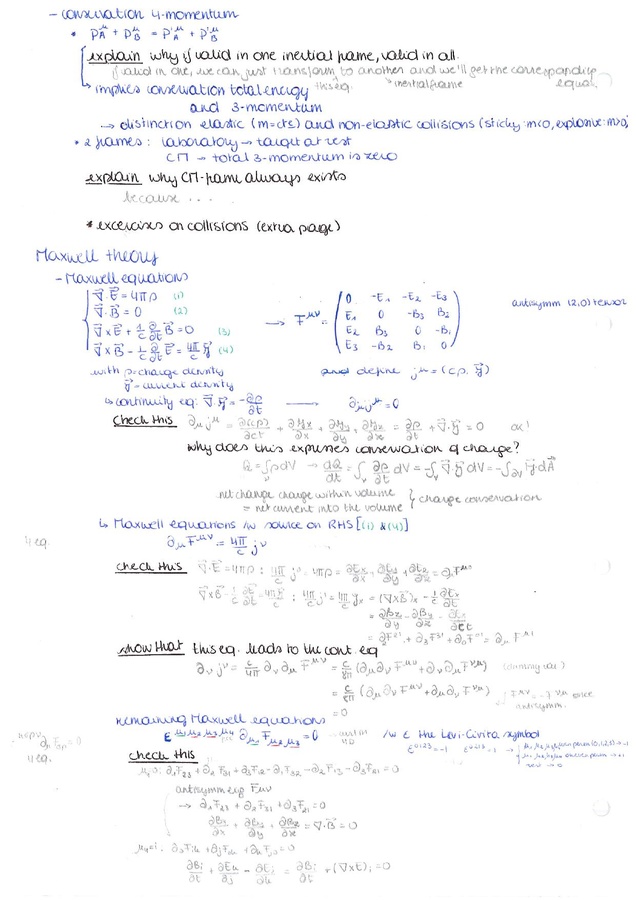 - conservation 4-momentum
• P_A^μ + P_B^μ = P'_A^μ + P'_B^μ
explain why if valid in one inertial frame, valid in all.
if valid in one, we can just transform to another and we'll get the corresponding
this eq. inertial frame equal.
↳ implies conservation total energy
and 3-momentum
→ distinction elastic (m=cte) and non-elastic collisions (sticky: m<0, explosive: m>0)
• 2 frames: laboratory → target at rest
CM → total 3-momentum is zero
explain why CM-frame always exists
because ...
* excercises on collisions (extra page)
Maxwell theory
- Maxwell equations
∇·E = 4πρ (1)
∇·B = 0 (2)
∇×E + 1/c ∂/∂t B = 0 (3)
∇×B - 1/c ∂/∂t E = 4π/c j (4)
→ F^μν = ( 0 -E1 -E2 -E3
E1 0 -B3 B2
E2 B3 0 -B1
E3 -B2 B1 0 )
antisymm (2,0) tensor
with ρ = charge density
j = current density
and define j^μ = (cρ, j)
↳ continuity eq: ∇·j = -∂ρ/∂t → ∂_μ j^μ = 0
check this ∂_μ j^μ = ∂(cρ)/∂ct + ∂jx/∂x + ∂jy/∂y + ∂jz/∂z = ∂ρ/∂t + ∇·j = 0 ok!
why does this expresses conservation of charge?
Q = ∫_V ρ dV → dQ/dt = ∫_V ∂ρ/∂t dV = -∫_V ∇·j dV = -∫_∂V j·dA
net change charge within volume
= net current into the volume } charge conservation
↳ Maxwell equations /w source on RHS [(1) & (4)]
4 eq. ∂_μ F^μν = 4π/c j^ν
check this ∇·E = 4πρ : 4π/c j^0 = 4πρ = ∂Ex/∂x + ∂Ey/∂y + ∂Ez/∂z = ∂_μ F^μ0
∇×B - 1/c ∂E/∂t = 4π/c j : 4π/c j^1 = 4π/c jx = (∇×B)x - 1/c ∂Ex/∂t
= ∂Bz/∂y - ∂By/∂z - ∂Ex/∂ct
= ∂_2F^21 + ∂_3F^31 + ∂_0F^01 = ∂_μ F^μ1
show that this eq. leads to the cont. eq
∂_ν j^ν = c/4π ∂_ν ∂_μ F^μν = c/8π (∂_μ∂_ν F^μν + ∂_ν∂_μ F^μν) (dummy var)
= c/8π (∂_μ∂_ν F^μν + ∂_μ∂_ν F^νμ) F^μν = -F^νμ since
= 0 antisymm.
remaining Maxwell equations
ε^μ1μ2μ3μ4 ∂_μ1 F_μ2μ3 = 0 /w ε the Levi-Civita symbol
4 eq.
check this
μ4=0: ∂_1F_23 + ∂_2F_31 + ∂_3F_12 - ∂_1F_32 - ∂_2F_13 - ∂_3F_21 = 0
antisymm eig F_μν
→ ∂_1F_23 + ∂_2F_31 + ∂_3F_21 = 0
∂Bx/∂x + ∂By/∂y + ∂Bz/∂z = ∇·B = 0
∂Bi/∂t + ∂Ek/∂j - ∂Ej/∂k = ∂Bi/∂t + (∇×E)i = 0